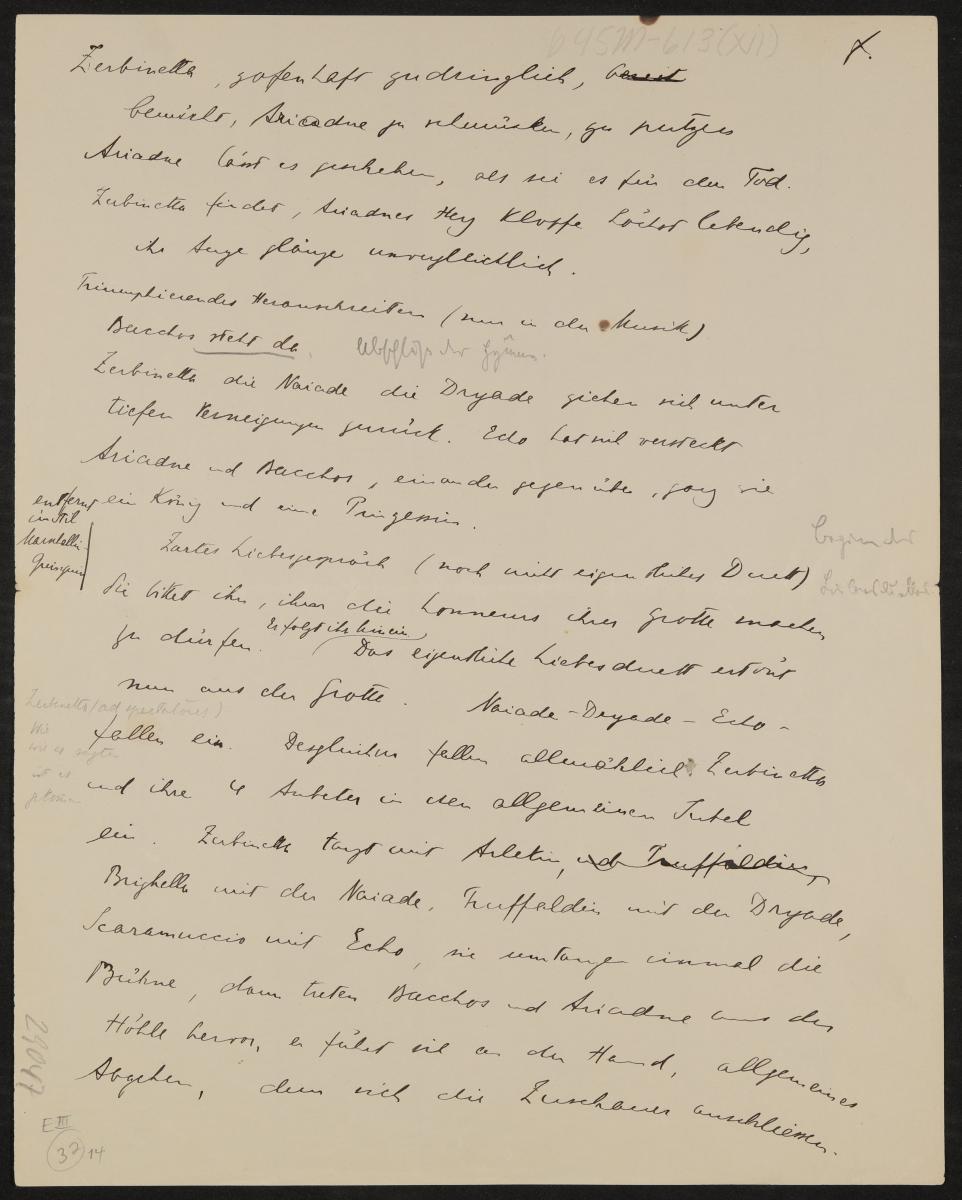 695M-613(XII)
X.
Zerbinetta, zofenhaft zudringlich, bereit
bemüht, Ariadne zu schmücken, zu putzen
Ariadne lässt es geschehen, als sei es für den Tod.
Zerbinetta findet, Ariadnes Herz klopfe höchst lebendig,
ihr Auge glänze unvergleichlich.
Triumphierendes Heranschreiten (nun in der Musik)
Bacchos steht da.
der Hymne.
Zerbinetta die Naiade die Dryade ziehen sich unter
tiefen Verneigungen zurück. Echo hat sich versteckt
Ariadne und Bacchos, einander gegenüber, ganz wie
ein König und eine Prinzessin.
entfernt
im Stil
Zartes Liebesgespräch (noch nicht eigentliches Duett)
Beginn des
Liebesduettes.
Sie bittet ihn, ihm die Honneurs ihrer Grotte machen
zu dürfen. Er folgt ihr hinein. Das eigentliche Liebesduett ertönt
nun aus der Grotte. Naiade – Dryade – Echo –
Zerbinetta (ad spectatores)
Wie
wie es
ist es
gekommen
fallen ein. Desgleichen fallen allmählich Zerbinetta
und ihre 4 Anbeter in den allgemeinen Jubel
ein. Zerbinetta tanzt mit Arlekin, und Truffaldin,
Brighella mit der Naiade, Truffaldin mit der Dryade,
Scaramuccio mit Echo, sie umtanzen einmal die
Bühne, dann treten Bacchos und Ariadne aus der
Höhle hervor, er führt sie an der Hand, allgemeines
Abgehen, dem sich die Zuschauer anschliessen.
29047
E III
32 14